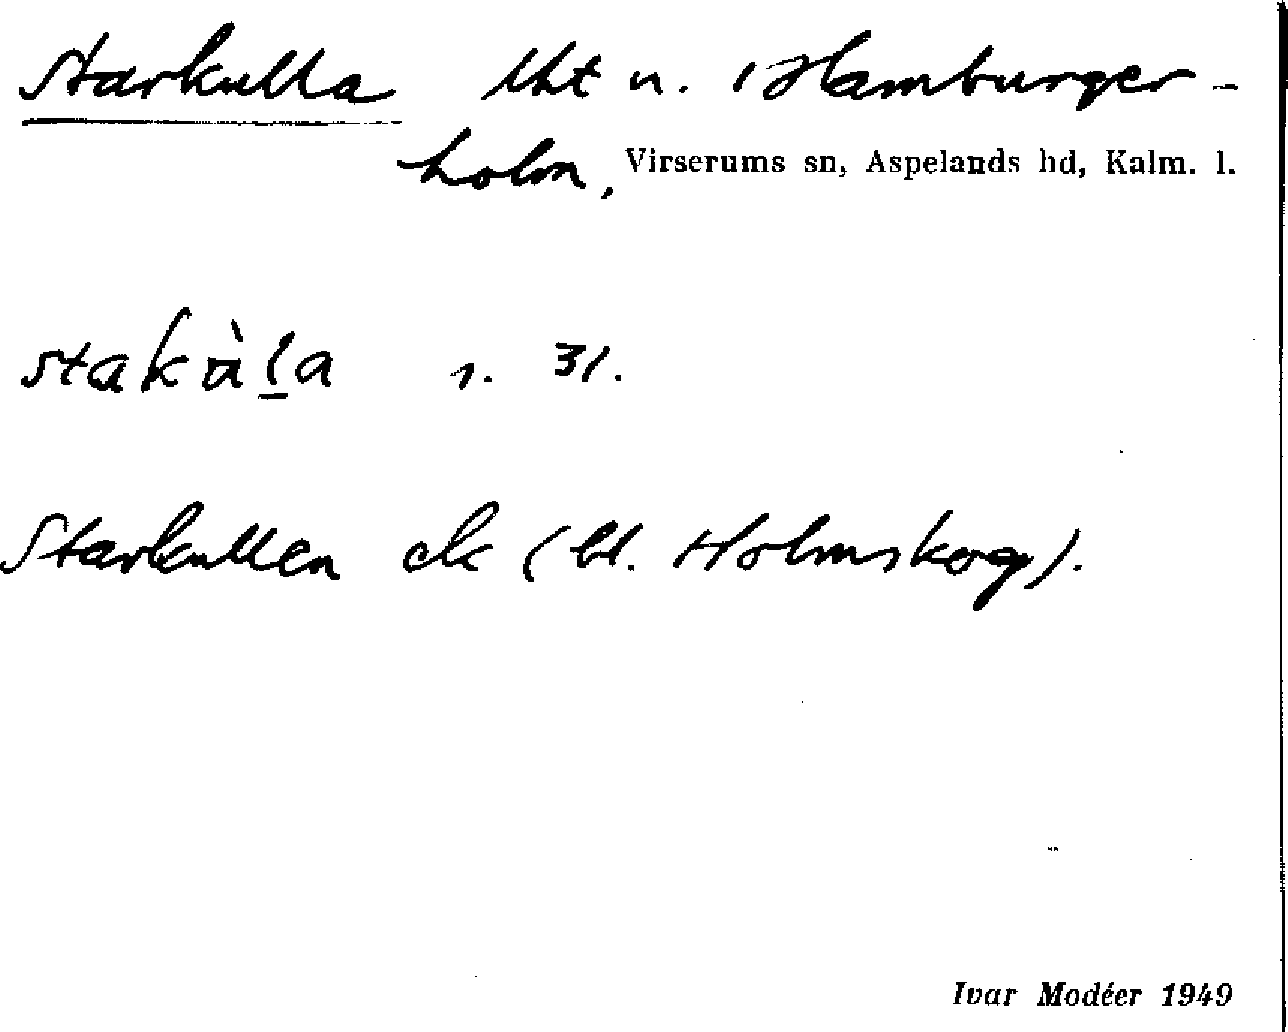 Starkulla lht u. Hamburger-
holm, Virserums sn, Aspelands hd, Kalm. l.
stakùl̠a s. 31.
Starkullen ek (bl. Holmskog).
Ivar Modéer 1949